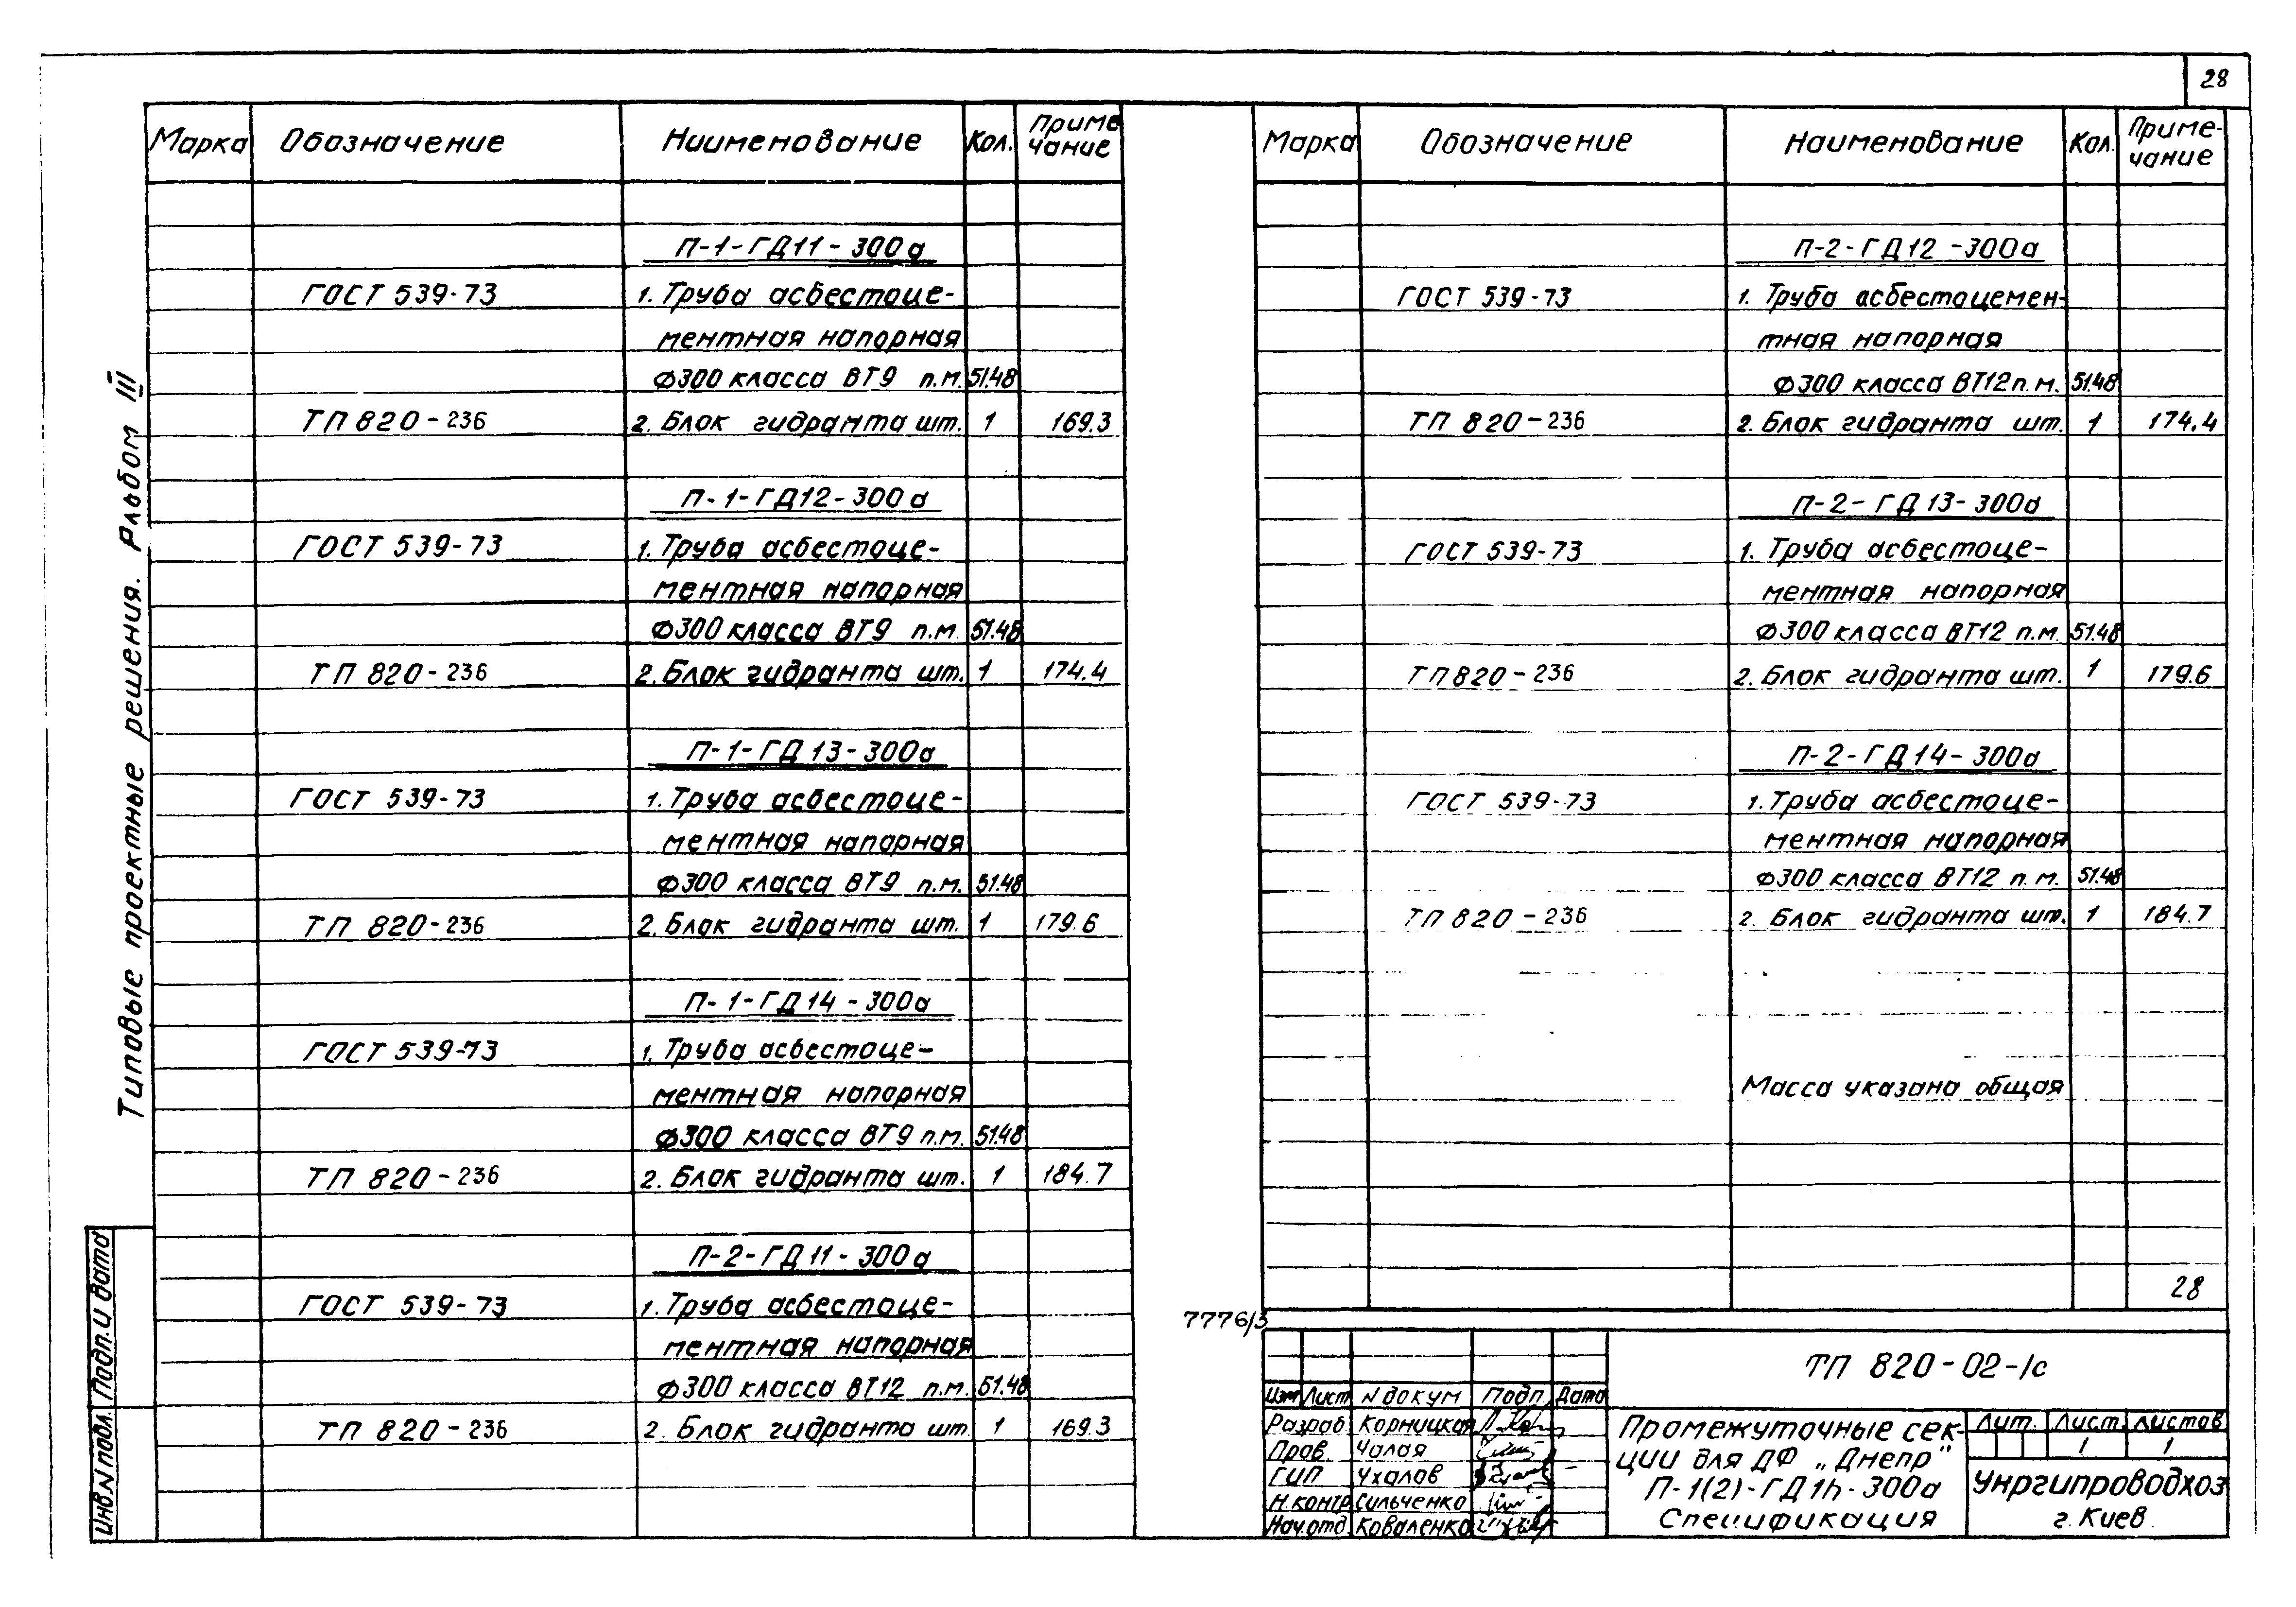 28
Марка Обозначение Наименование Кол. Приме чание
П-1-ГД11-300а
ГОСТ 539-73 1. Труба асбестоце-
ментная напорная
Ф300 класса ВТ9 п.м. 51.48
ТП 820-236 2. Блок гидранта шт. 1 169.3
П-1-ГД12-300а
ГОСТ 539-73 1. Труба асбестоце-
ментная напорная
Ф300 класса ВТ9 п.м. 51.48
ТП 820-236 2. Блок гидранта шт. 1 174.4
П-1-ГД13-300а
ГОСТ 539-73 1. Труба асбестоце-
ментная напорная
Ф300 класса ВТ9 п.м. 51.48
ТП 820-236 2. Блок гидранта шт. 1 179.6
П-1-ГД14-300а
ГОСТ 539-73 1. Труба асбестоце-
ментная напорная
Ф300 класса ВТ9 п.м. 51.48
ТП 820-236 2. Блок гидранта шт. 1 184.7
П-2-ГД11-300а
ГОСТ 539-73 1. Труба асбестоце-
ментная напорная
Ф300 класса ВТ12 п.м. 51.48
ТП 820-236 2. Блок гидранта шт. 1 169.3
Марка Обозначение Наименование Кол. Приме-
чание
П-2-ГД12-300а
ГОСТ 539-73 1. Труба асбестоцемен-
тная напорная
Ф300 класса ВТ12 п.м. 51.48
ТП 820-236 2. Блок гидранта шт. 1 174.4
П-2-ГД13-300а
ГОСТ 539-73 1. Труба асбестоце-
ментная напорная
Ф300 класса ВТ12 п.м. 51.48
ТП 820-236 2. Блок гидранта шт. 1 179.6
П-2-ГД14-300а
ГОСТ 539-73 1. Труба асбестоце-
ментная напорная
Ф300 класса ВТ12 п.м. 51.48
ТП 820-236 2. Блок гидранта шт. 1 184.7
Масса указана общая
28
7776/3
ТП 820-02-1с
Изм Лист N докум Подп. Дата
Разраб. Корницкая
Пров. Чалая
ГИП Ухалов
Н.контр Сильченко
Нач.отд. Коваленко
Промежуточные сек-
ции для ДФ „Днепр"
П-1(2)-ГД1h-300а
Спецификация
Лит. Лист Листов
1 1
Укргипроводхоз
г. Киев
Типовые проектные решения. Альбом III
Подп. и дата
Инв. N подл.